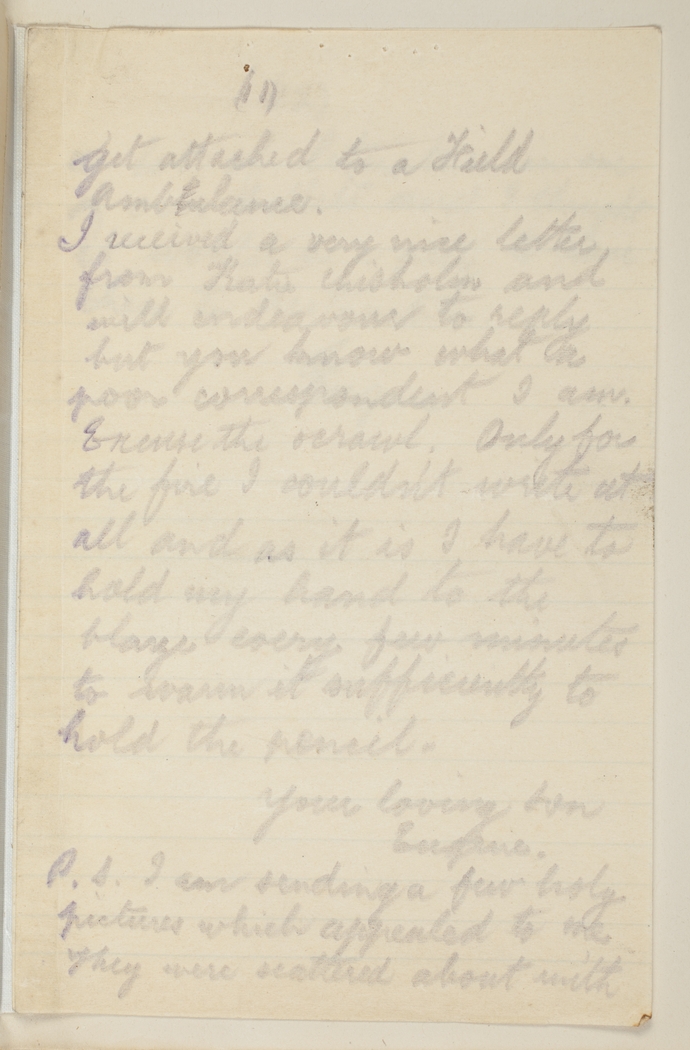 get attached to a Field
Ambulance.
I received a very nice letter
from Kate Chisholm and
will endeavour to reply
but you know what a
poor correspondent I am.
Excuse the scrawl. Only for
the fire I couldn't write at
all and as it is I have to
hold my hand to the
blaze every few minutes
to warm it sufficiently to
hold the pencil.
Your loving son
Eugene.
P.S. I am sending a few holy
pictures which appealed to me
They were scattered about with